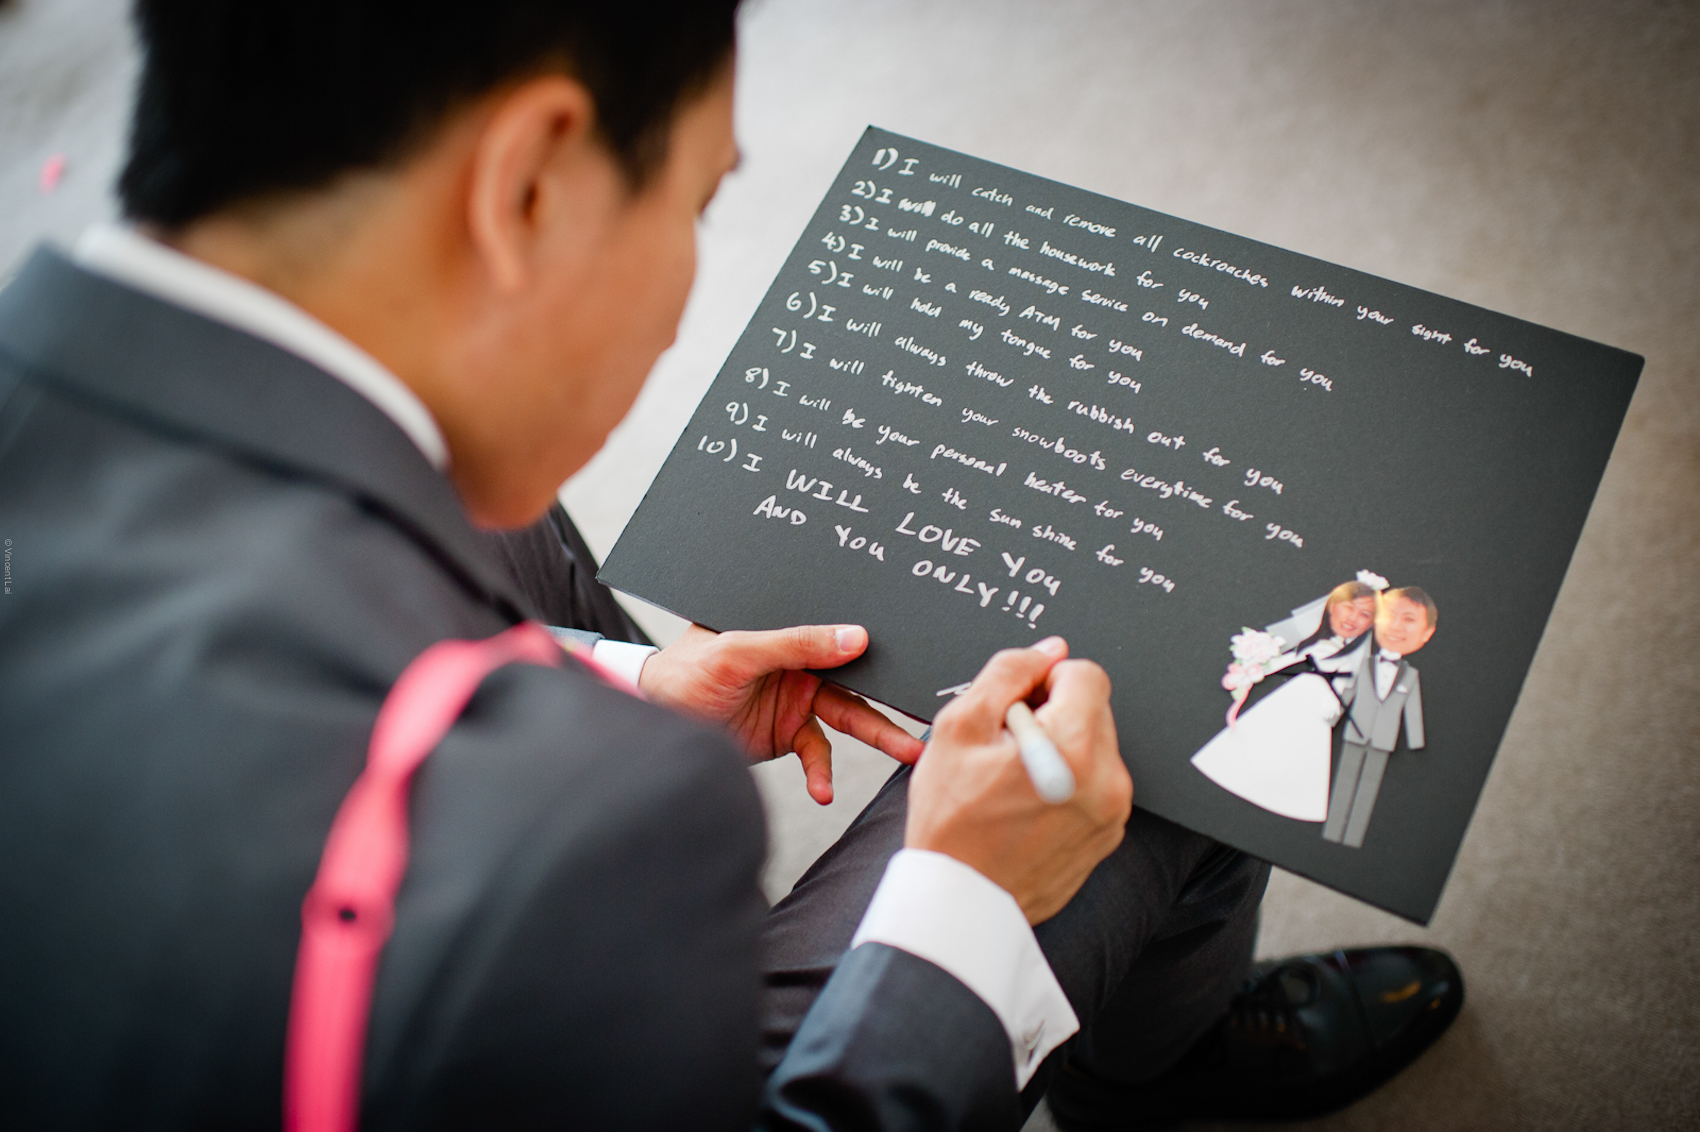 1) I will catch and remove all cockroaches within your sight for you
2) I will do all the housework for you
3) I will provide a massage service on demand for you
4) I will be a ready ATM for you
5) I will hold my tongue for you
6) I will always throw the rubbish out for you
7) I will tighten your snowboots everytime for you
8) I will be your personal heater for you
9) I will always be the sun shine for you
10) I WILL LOVE YOU
AND YOU ONLY!!!
© Vincent Lai